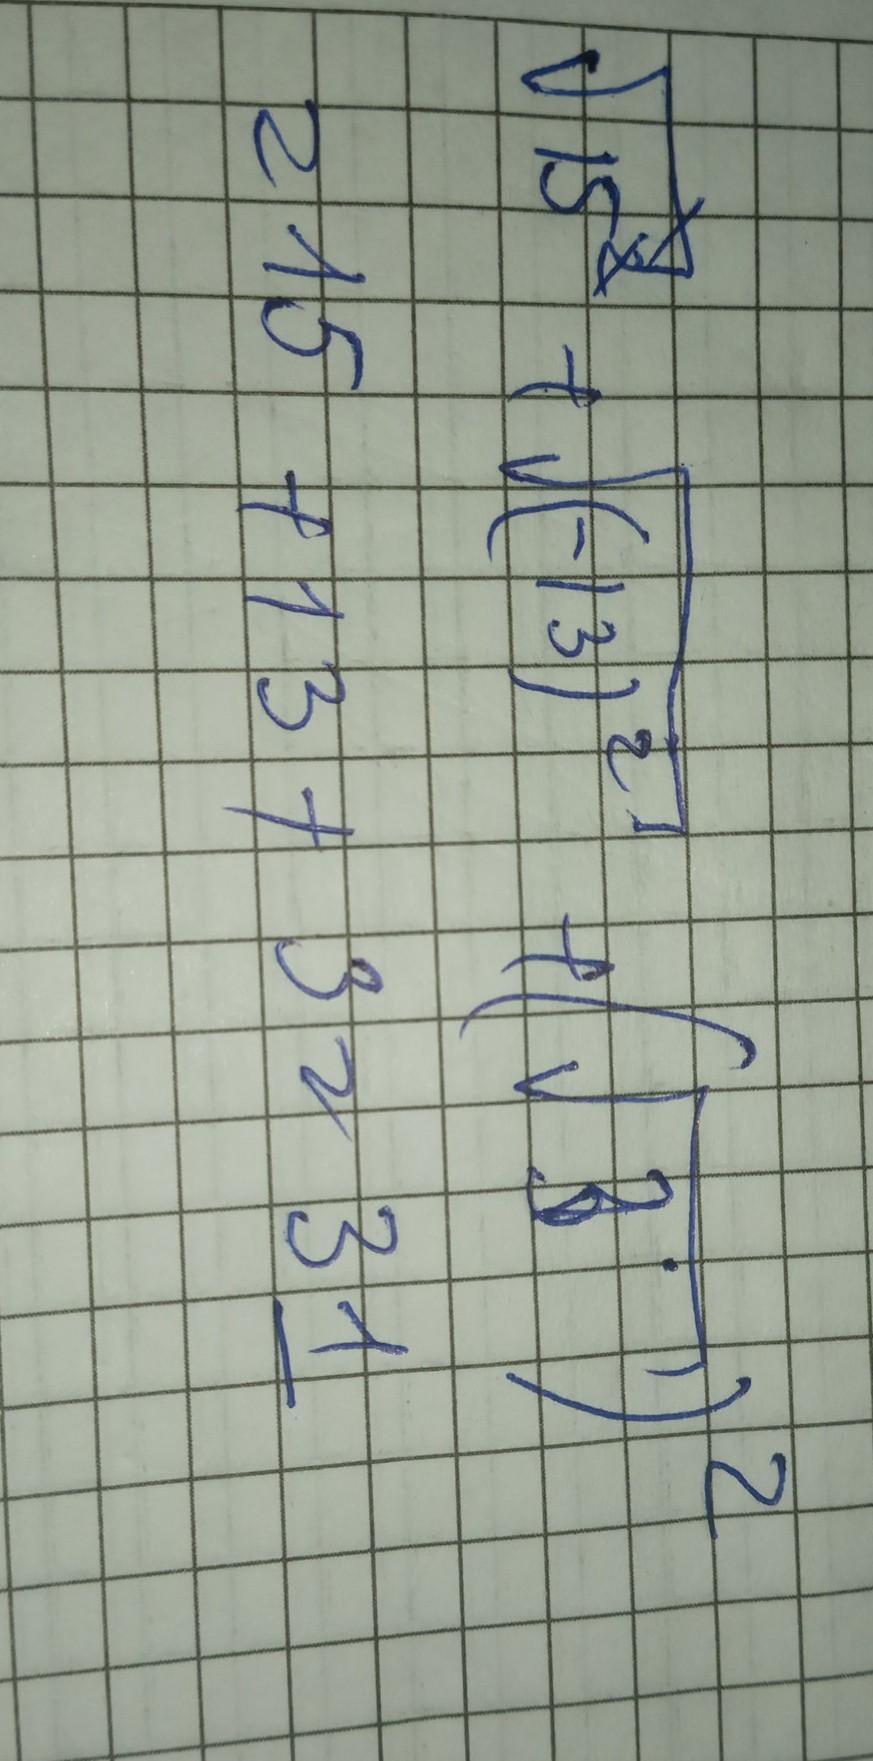 √15² + √(-13)² + (√3)²
= 15 + 13 + 3 = 31